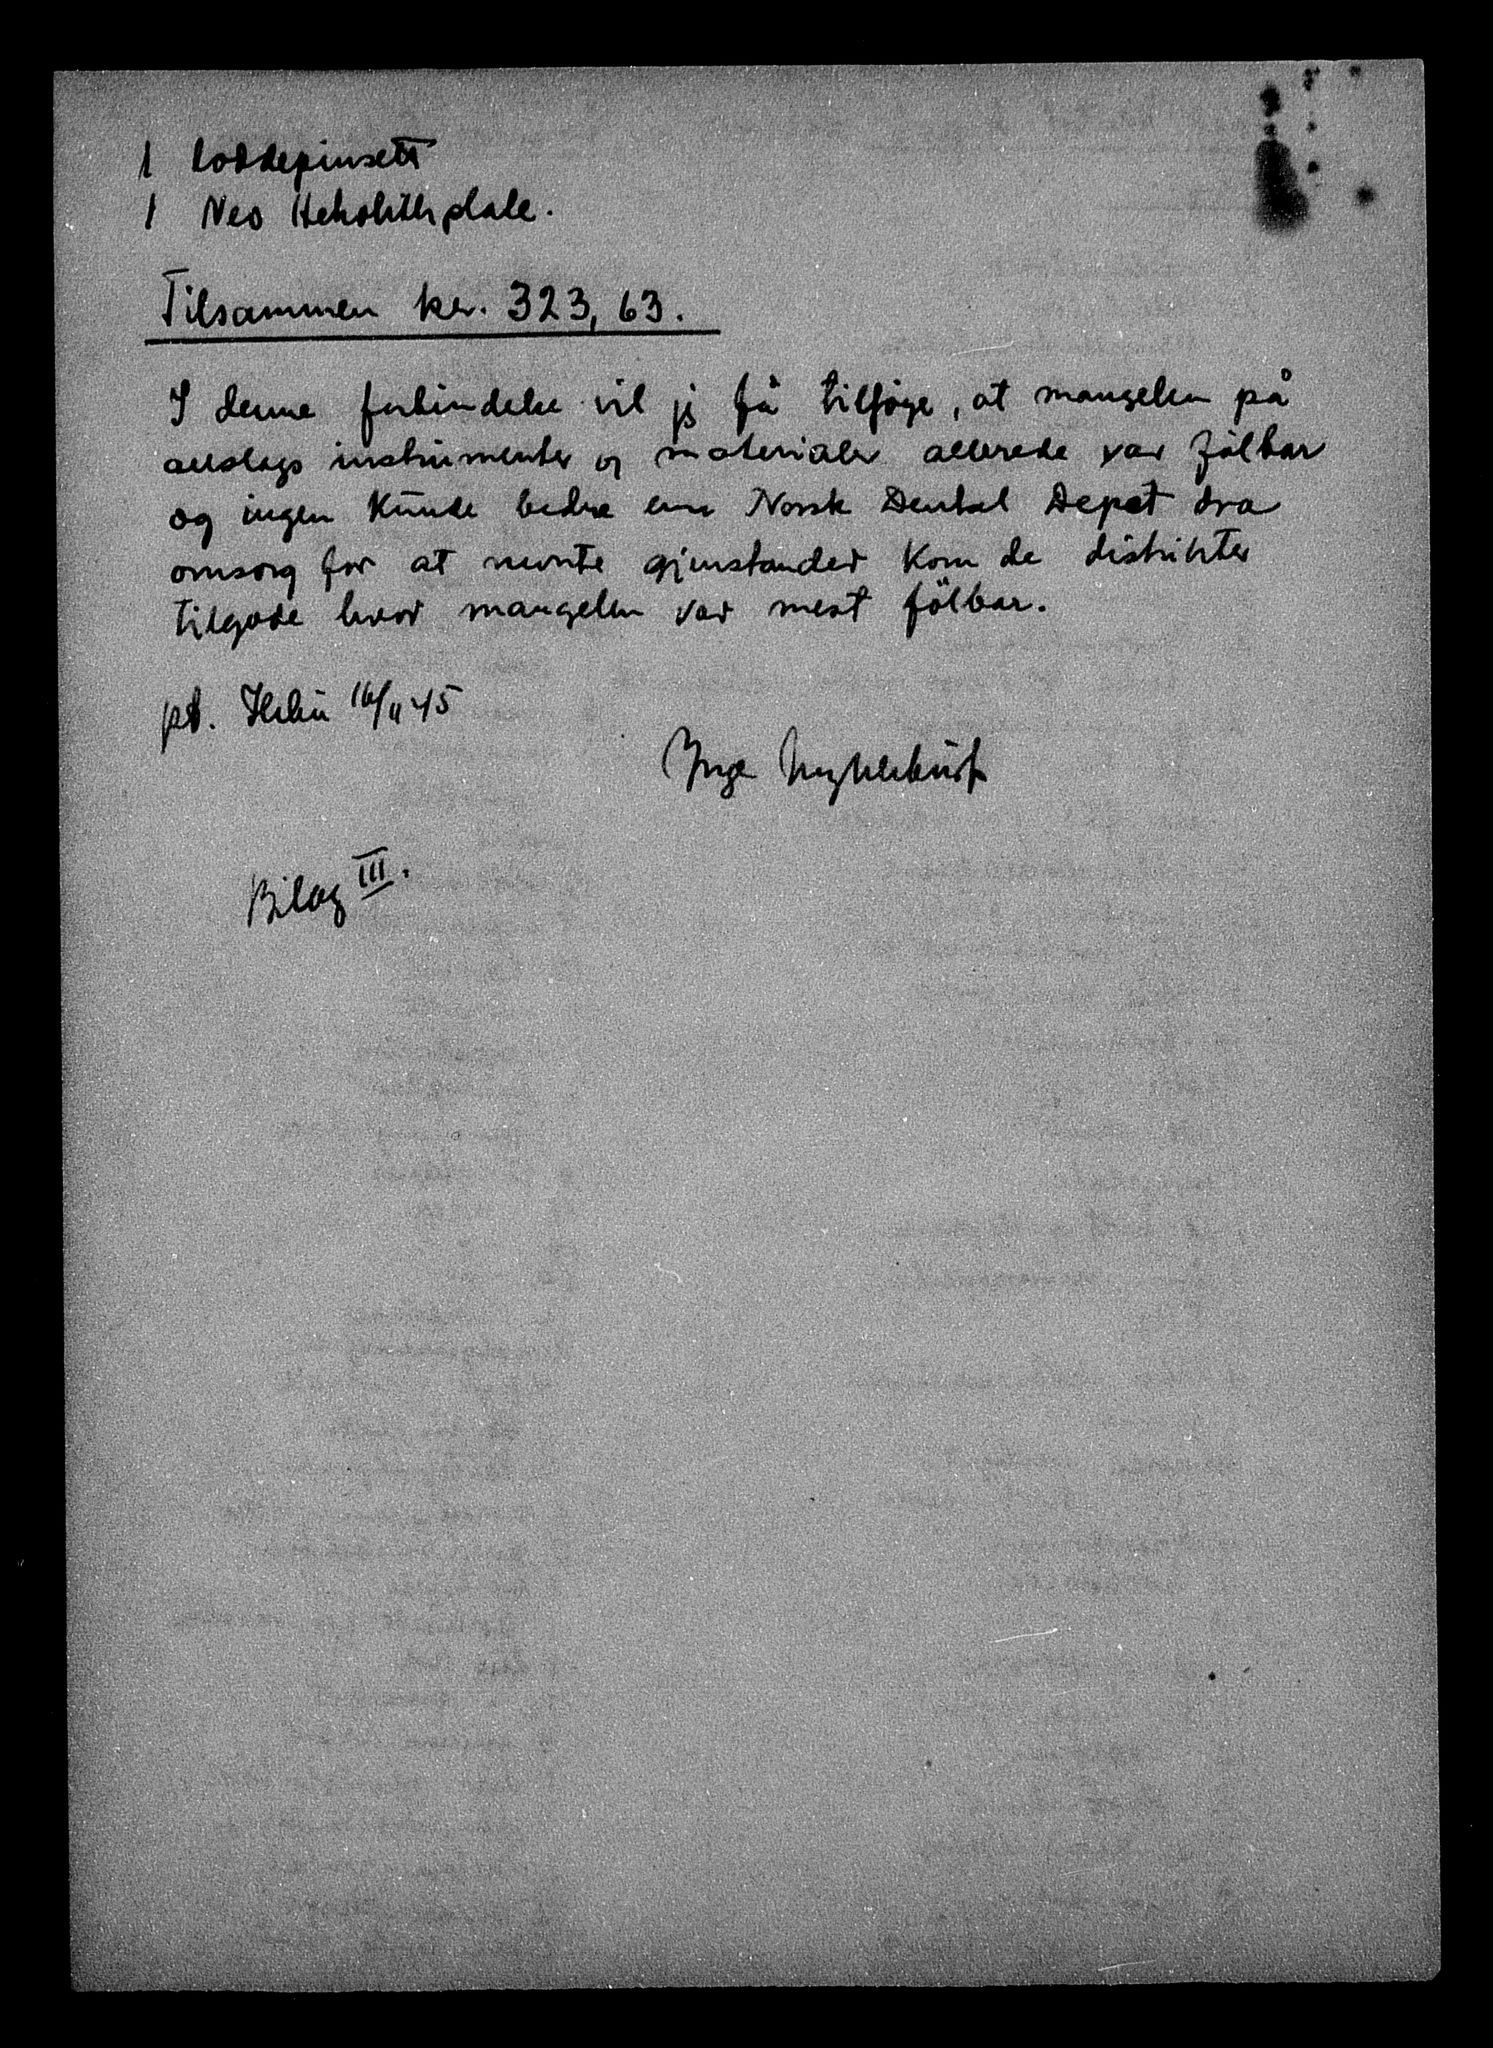 1 Loddepinsett
1 Neo Hekolithplate.
Tilsammen kr. 323,63.
I denne forbindelse vil jeg få tilföye, at mangelen på
allslags instrumenter og materialer allerede var fölbar
og ingen kunde bedre enn Norsk Dental Depot dra
omsorg for at nevnte gjenstander kom de distrikter
tilgode hvor mangelen var mest fölbar.
pt. Ilebu 16/11 45
Inge
Bilag III.